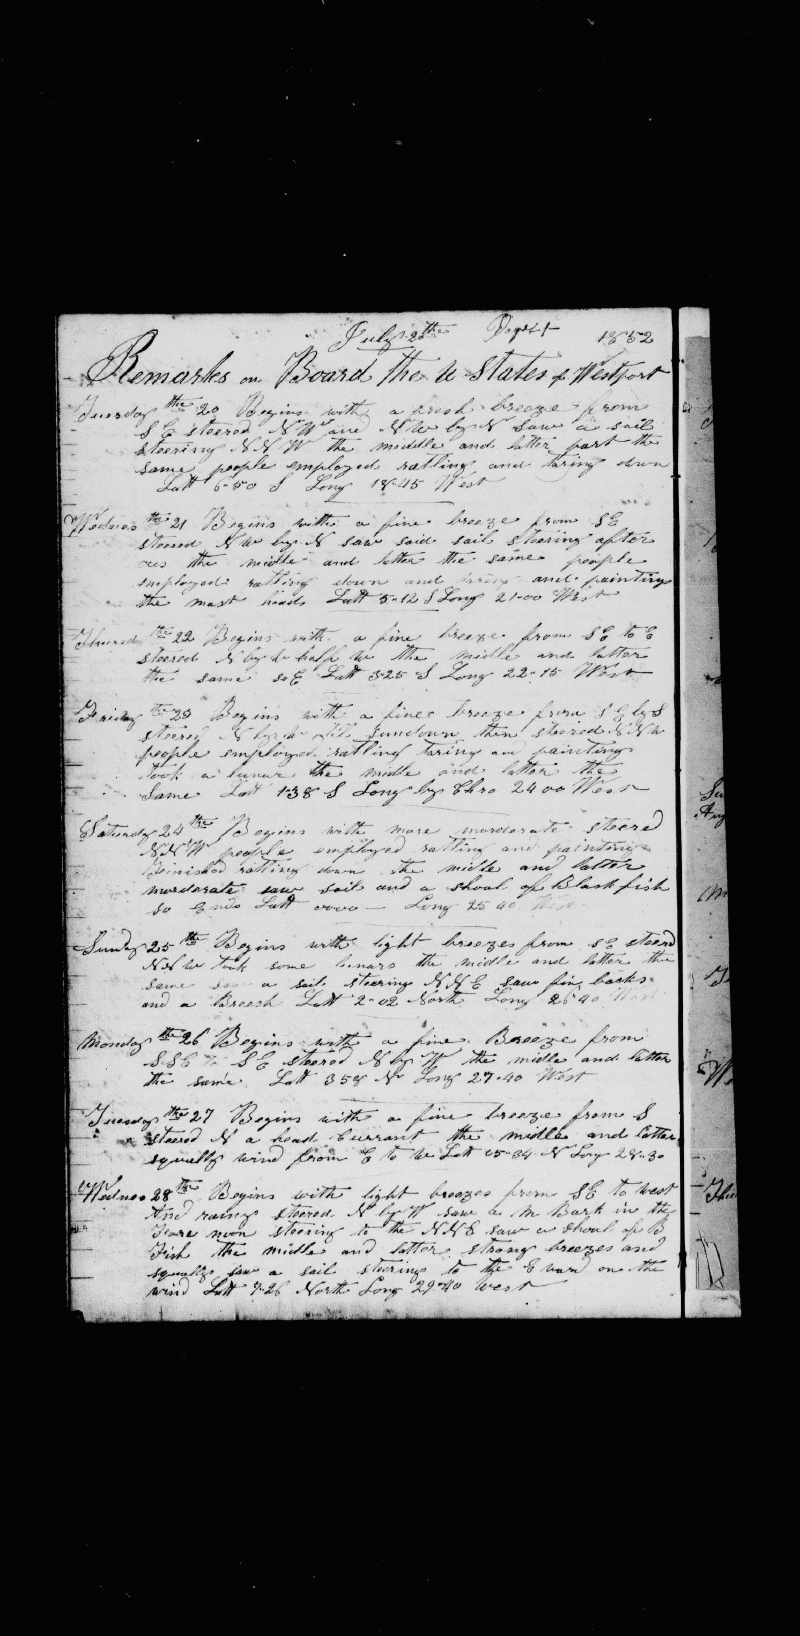 July 20th Page 1852
Remarks on Board the U States of Westport
Tuesday the 20 Begins with a fresh breeze from
S E steered N W and N W by N saw a sail
steering N N W the middle and latter part the
same people employed ratling and taring down
Latt 6-50 S Long 18-45 West
Wednes the 21 Begins with a fine breeze from S E
steered N W by N saw said sail steering after
ous the midle and latter the same people
employed ratling down and taring and painting
the mast heads Latt 5-12 S Long 21-00 West
Thursd the 22 Begins with a fine breeze from S E to E
steered N by W half W the midle and latter
the same so E Latt 3-25 S Long 22-15 West
Friday the 23 Begins with a fine breeze from S E by S
steered N by W till sundown then steered N N W
people employed ratling taring an painting
took a lunar the midle and latter the
same Latt 1-38 S Long by Chro 24 00 West
Saturday 24 the Begins with more morderate steered
N N W people employed ratling and painting
Feinished ratling down the midle and latter
morderate saw sail and a shoal of Blackfish
so Ends Latt 0000 — Long 25 40 West
Sunday 25 th Begins with light breezes from S E steerd
N N W took some lunars the midle and latter the
same saw a sail steering N N E saw fin backs
and a Breech Latt 2-02 North Long 26 40 West
Monday the 26 Begins with a fine Breeze from
S S E to S E steered N by W the midle and latter
the same Latt 3 58 N Long 27-40 West
Tuesday the 27 Begins with a fine breeze from S
steered N a head Currant the midle and latter
squally wind from E to W Latt 05-34 N Long 28-30
Wednes 28 th Begins with light breezes from S E to west
And rainey steered N by W saw a m Bark in the
Fore noon steering to the N N E saw a shoal of B
Fish the midle and latter strong breezes and
squalls saw a sail steering to the E ward on the
wind Latt 7-26 North Long 29-40 West